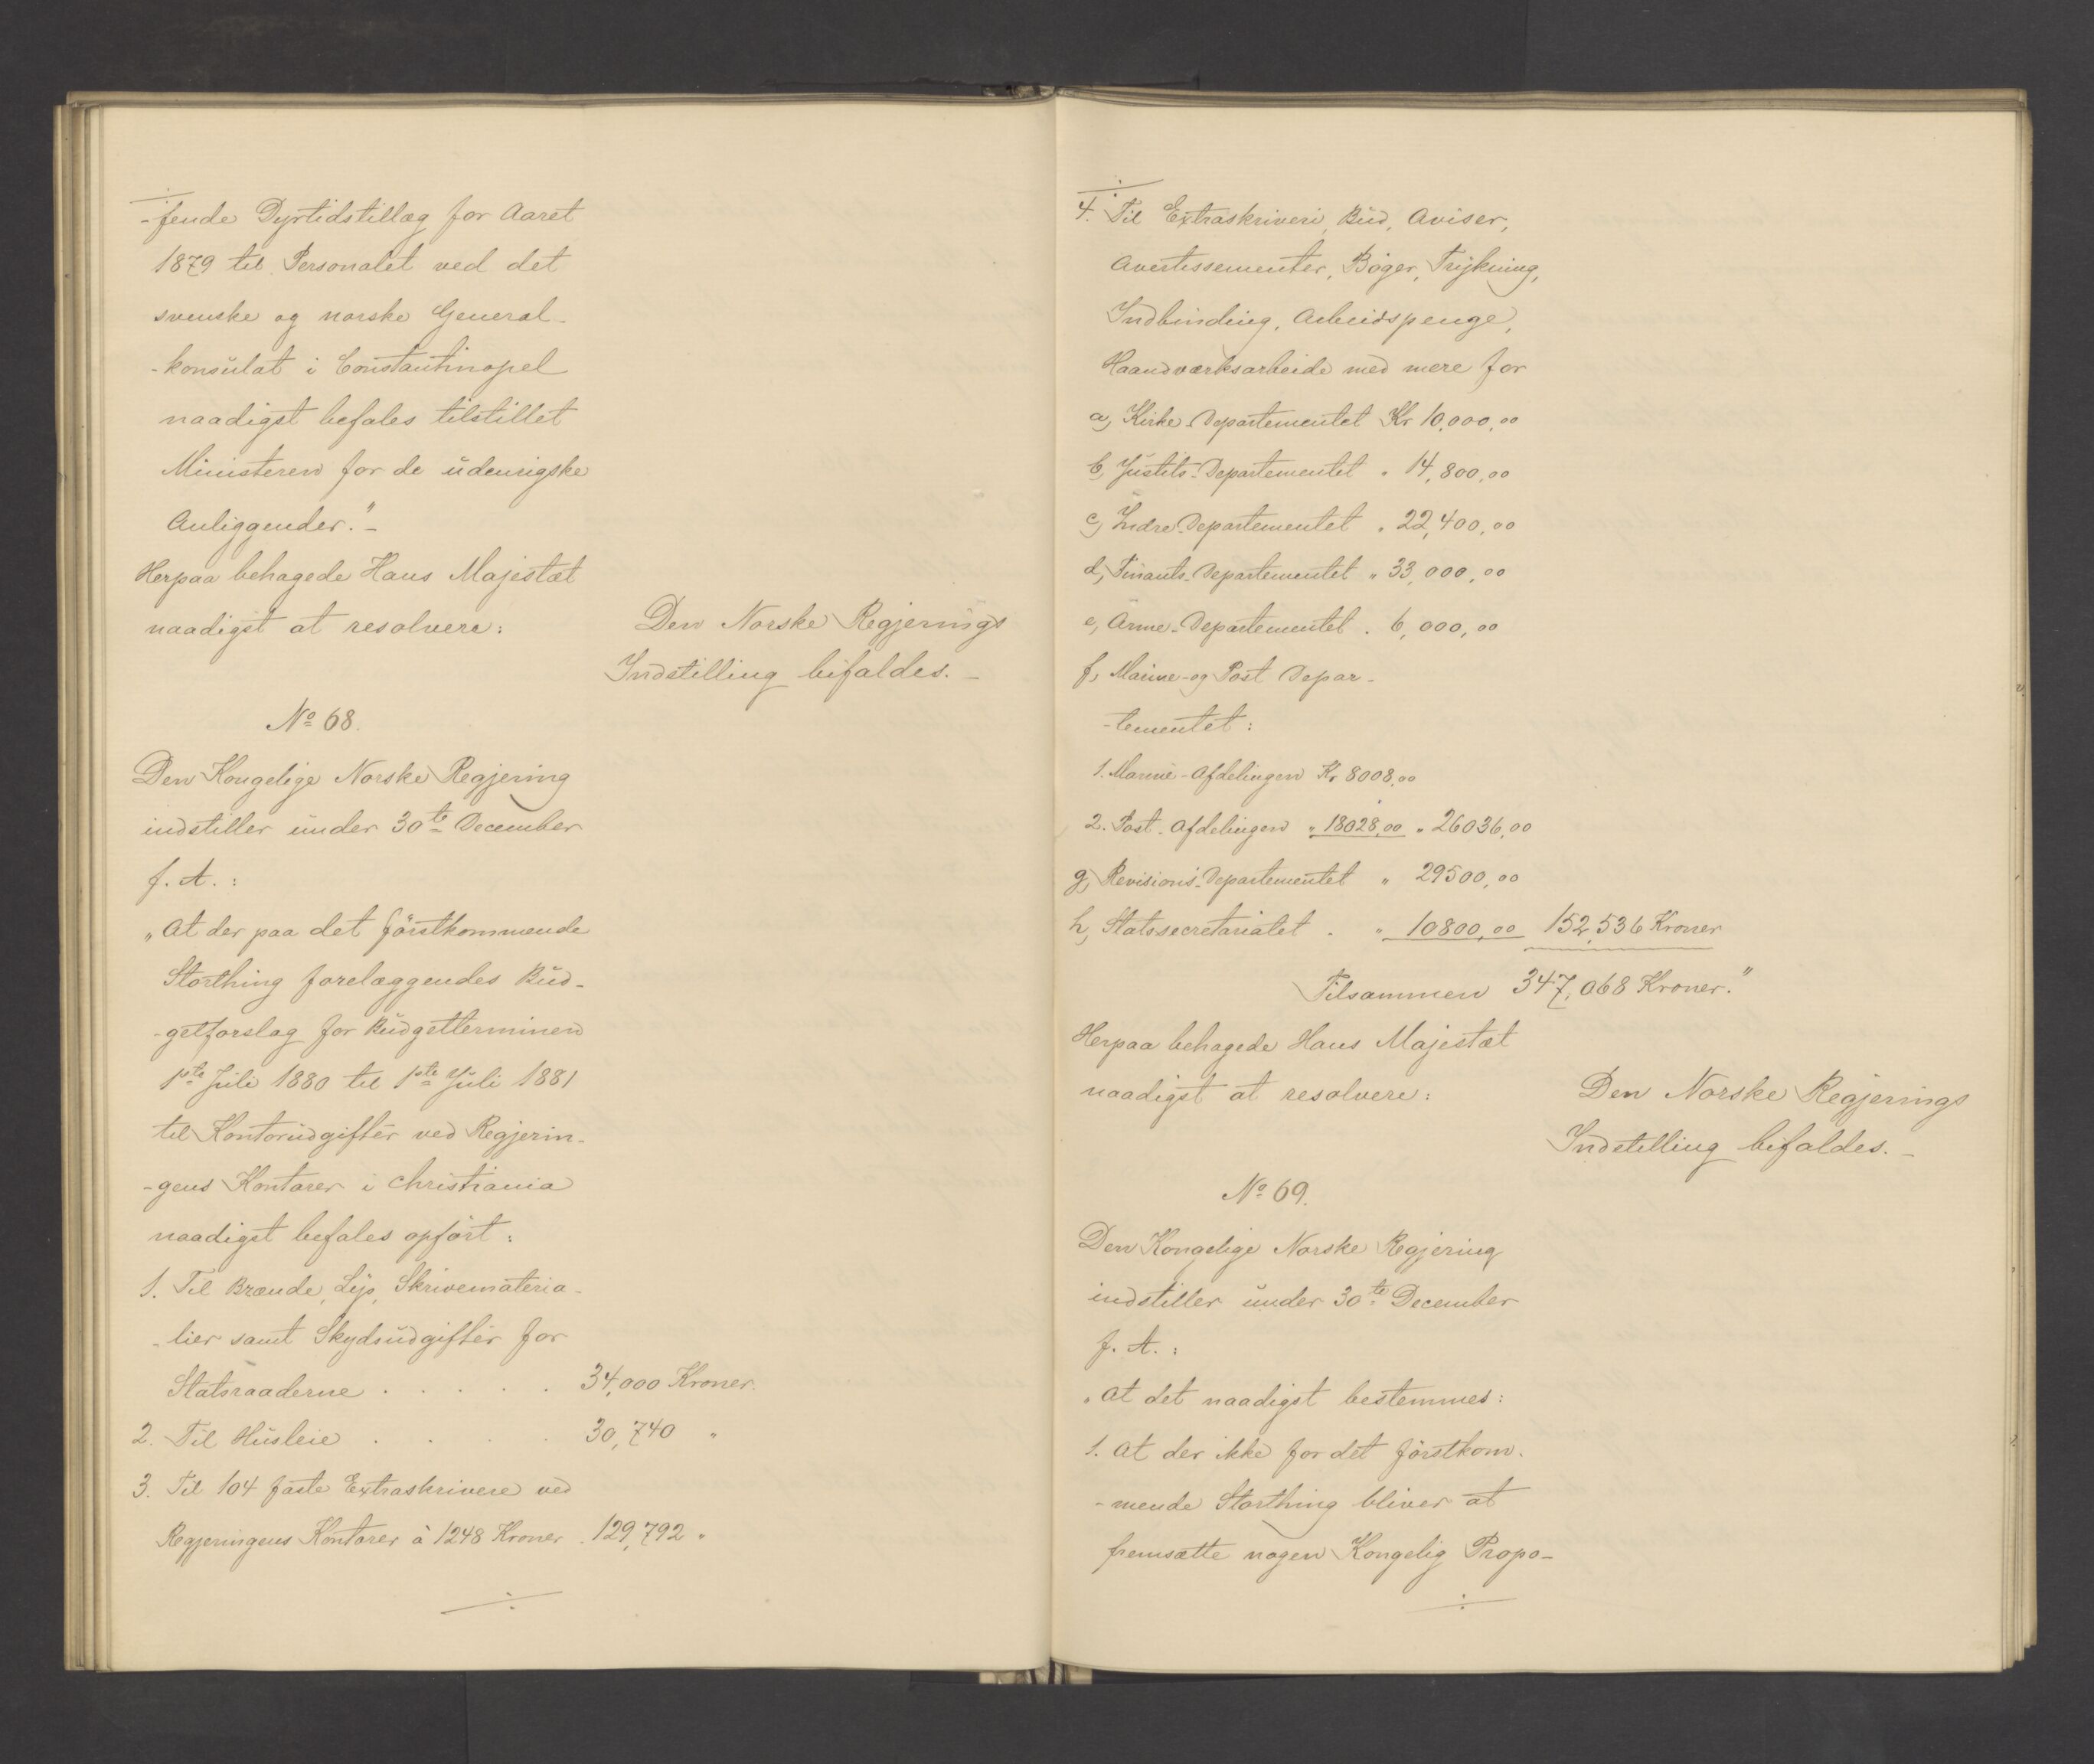 -fende Dyrtidstillæg for Aaret
1879 til Personalet ved det
svenske og norske General-
-konsulat i Constantinopel
naadigst befales tilstillet
Ministeren for de udenrigske
Anliggender."-
Herpaa behagede Hans Majestæt
naadigst at resolvere:
Den Norske Regjerings
Indstilling bifaldes.-
No 68.
Den Kongelige Norske Regjering
indstiller under 30te December
f. A.:
"At der paa det förstkommende
Storthing forelæggendes Bud-
-getforslag for Budgetterminen
1ste Juli 1880 til 1ste Juli 1881
til Kontorudgifter ved Regjerin-
-gens Kontorer i Christiania
naadigst befales opfört:
1. Til Brænde, Lys, Skrivemateria-
-lier samt Skydsudgifter for
Statsraaderne . . . . . 34,000 Kroner.
2. Til Husleie . . . . 30,740 "
3. Til 104 faste Extraskrivere ved
Regjeringens Kontorer à 1248 Kroner . 129,792 "
4. Til Extraskriveri, Bud, Aviser,
Avertissementer, Böger, Trykning,
Indbinding, Arbeidspenge,
Haandværksarbeide med mere for
a, Kirke-Departementet Kr 10,000,00
b, Justits-Departementet " 14,800,00
c, Indre-Departementet " 22,400,00
d, Finants-Departementet " 33,000,00
e, Arme-Departementet . 6,000,00
f, Marine-og Post Depar-
-tementet:
1. Marine-Afdelingen Kr 8008,00
2. Post-Afdelingen " 18028,00 " 26036,00
g, Revisions-Departementet " 29500,00
h, Statssecretariatet . " 10800,00 152,536 Kroner
Tilsammen 347,068 Kroner."
Herpaa behagede Hans Majestæt
naadigst at resolvere:
Den Norske Regjerings
Indstilling bifaldes.-
No 69.
Den Kongelige Norske Regjering
indstiller under 30te December
f. A.:
"At det naadigst bestemmes:
1. At der ikke for det förstkom-
-mende Storthing bliver at
fremsætte nogen Kongelig Propo-